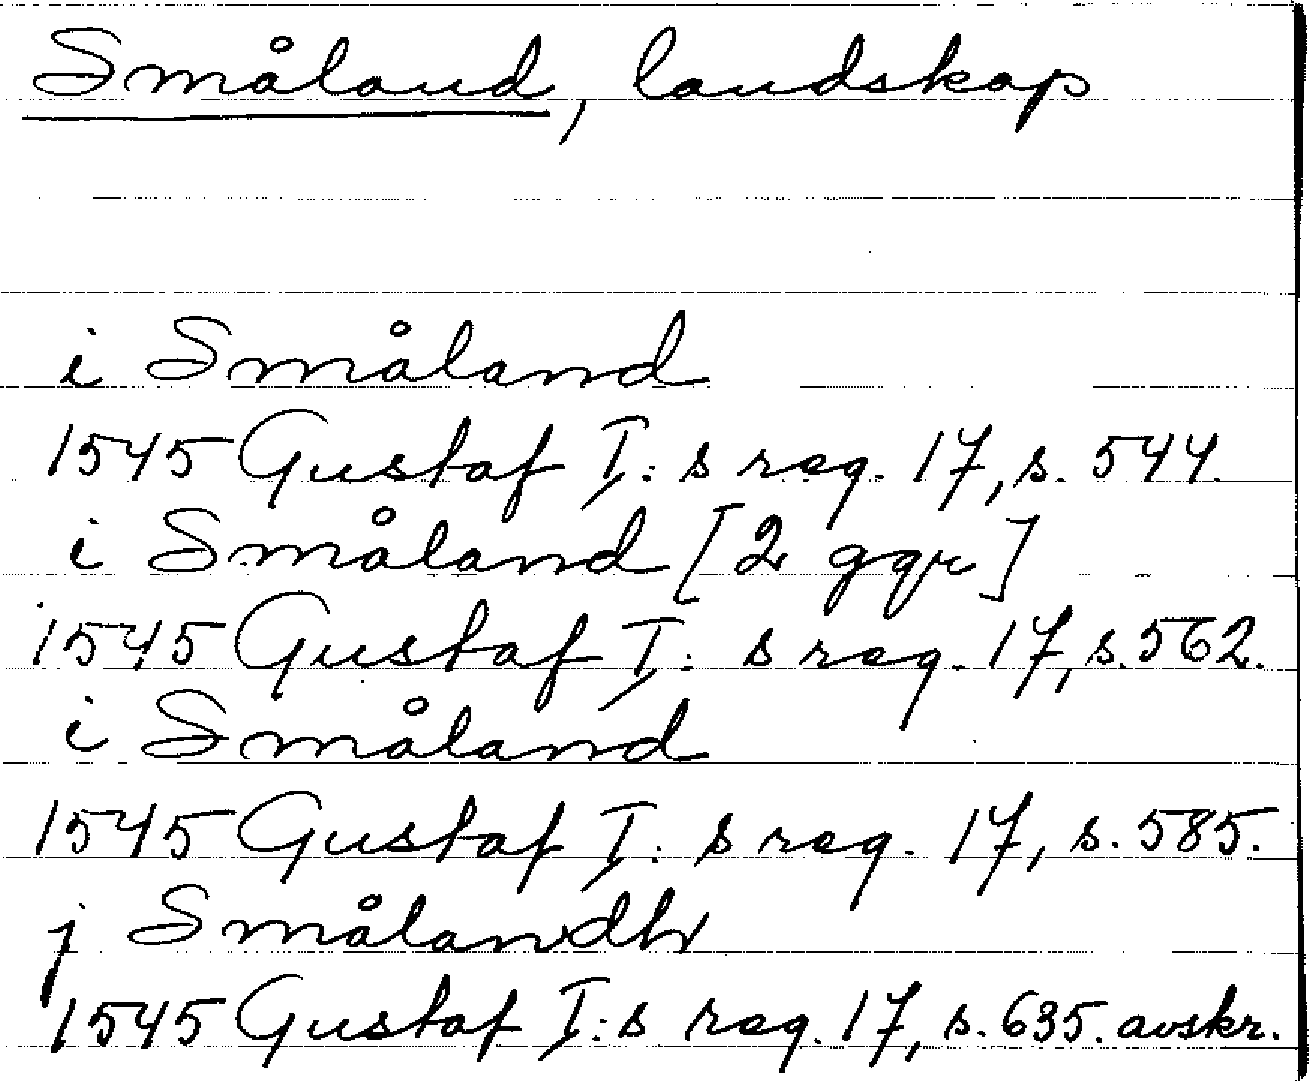 Småland, landskap
i Småland
1545 Gustaf I:s reg. 17, s. 544.
i Småland [2 ggr]
1545 Gustaf I:s reg. 17, s. 562.
i Småland
1545 Gustaf I:s reg. 17, s. 585.
j Smålandh
1545 Gustaf I:s reg. 17, s. 635. avskr.